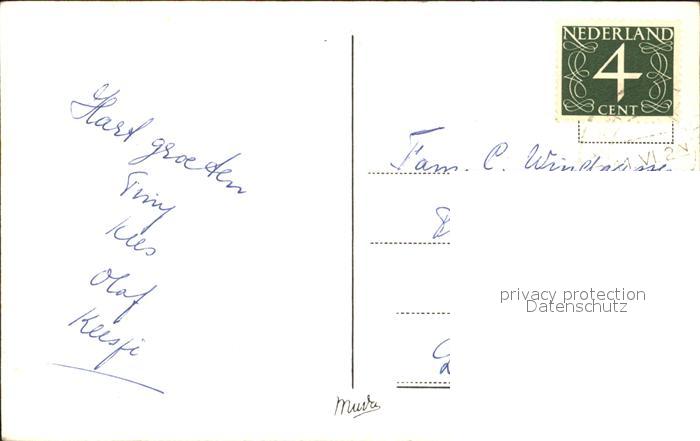 Hart groeten
Tiny
Kees
Olaf
Keesje
NEDERLAND
4
CENT
Fam. C.
privacy protection
Datenschutz